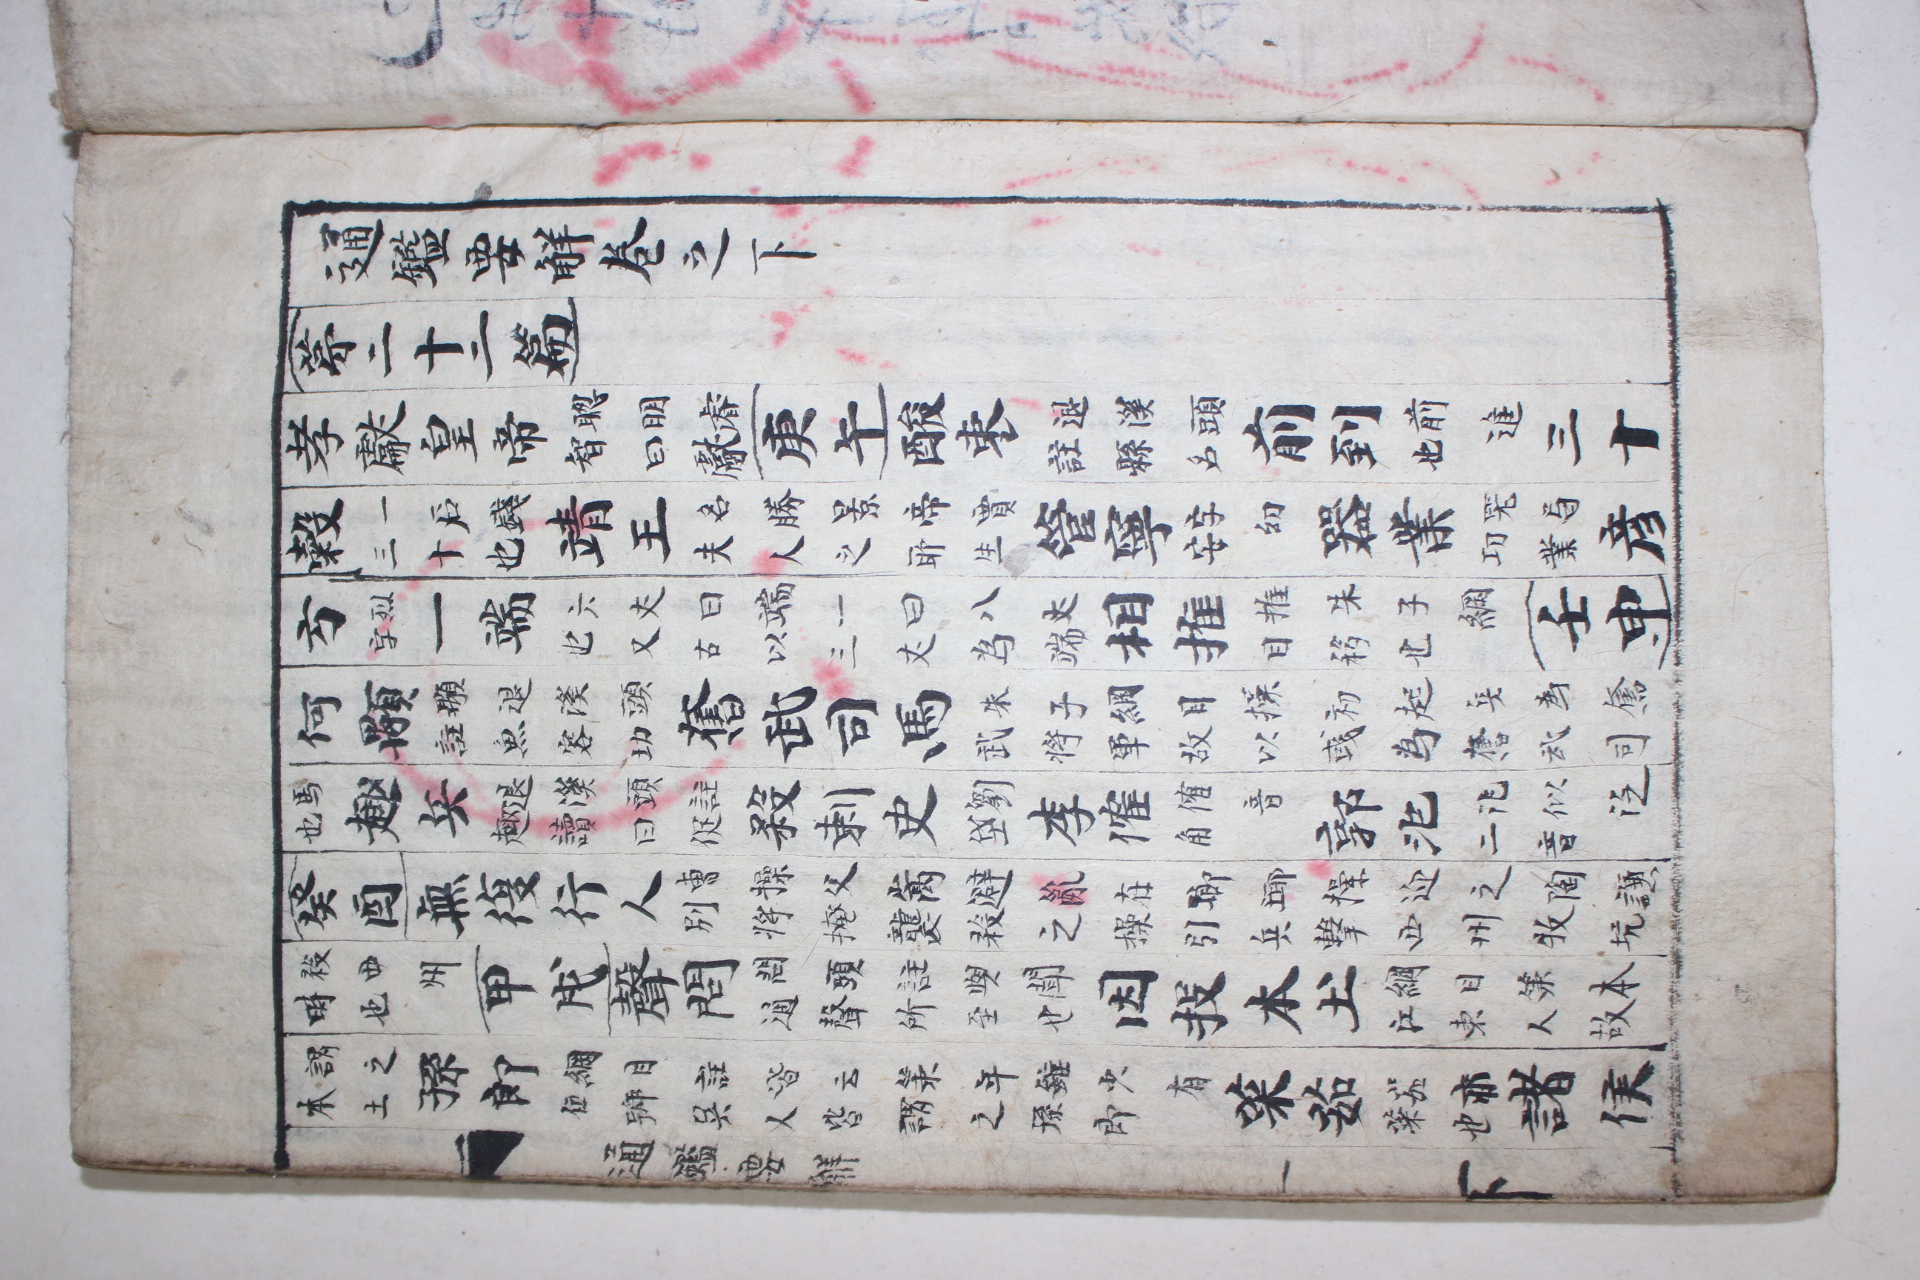 通鑑要解卷之下
第二十二篇
孝獻皇帝 聰明睿智曰獻 庚午 酸棗 退溪頭註縣名 前到 前進也 三十
穀 一石錢三十也 靖王 名勝景帝賈夫人之所生 管寧 字幼安 器業 器局功業 彦
方 烈字 一端 六丈曰端一曰八丈也又古以三丈為端 相推 推朱子綱目移也 壬申
何顒 顒退溪頭註魚容切 奮武司馬 朱子綱目操初起兵為奮武將軍故以彧為奮武司
馬也 趣兵 退溪頭註趣讀曰促 殺刺史 劉岱 李傕 傕音角 郭汜 汜似泛二音
癸酉 無復行人 曹操父嵩避亂在瑯琊操迎之陶謙別將掩襲殺之操引兵擊西州牧坑
殺西州時也 甲戌 聲問 問頭註與聞通聲所至也 因投本土 綱目策本江東人故
謂之本土 孫郎 綱目註皆云策年雖少有位號吳人皆謂之孫郎 菜茹 茹亦菜也 諸侯
通鑑要解 下 一